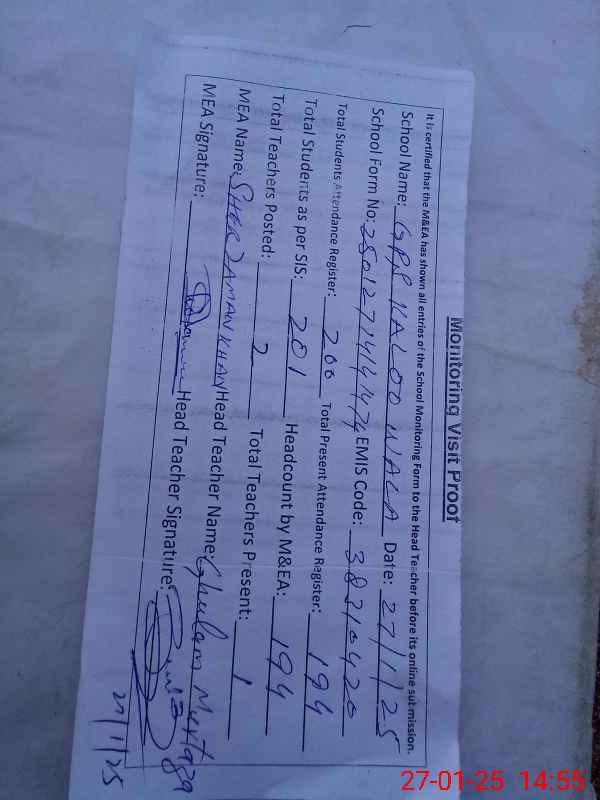 Monitoring Visit Proof
It is certified that the M&EA has shown all entries of the School Monitoring Form to the Head Teacher before its online submission.
School Name: GPS KALOO WALA Date: 27/1/25
School Form No: EMIS Code: 38310420
Total Students Attendance Register: 200 Total Present Attendance Register: 194
Total Students as per SIS: 201 Headcount by M&EA: 194
Total Teachers Posted: 2 Total Teachers Present: 1
MEA Name: SHER ZAMAN KHAN Head Teacher Name: Ghulam Murtaza
MEA Signature: Head Teacher Signature:
27/1/25
27-01-25 14:55